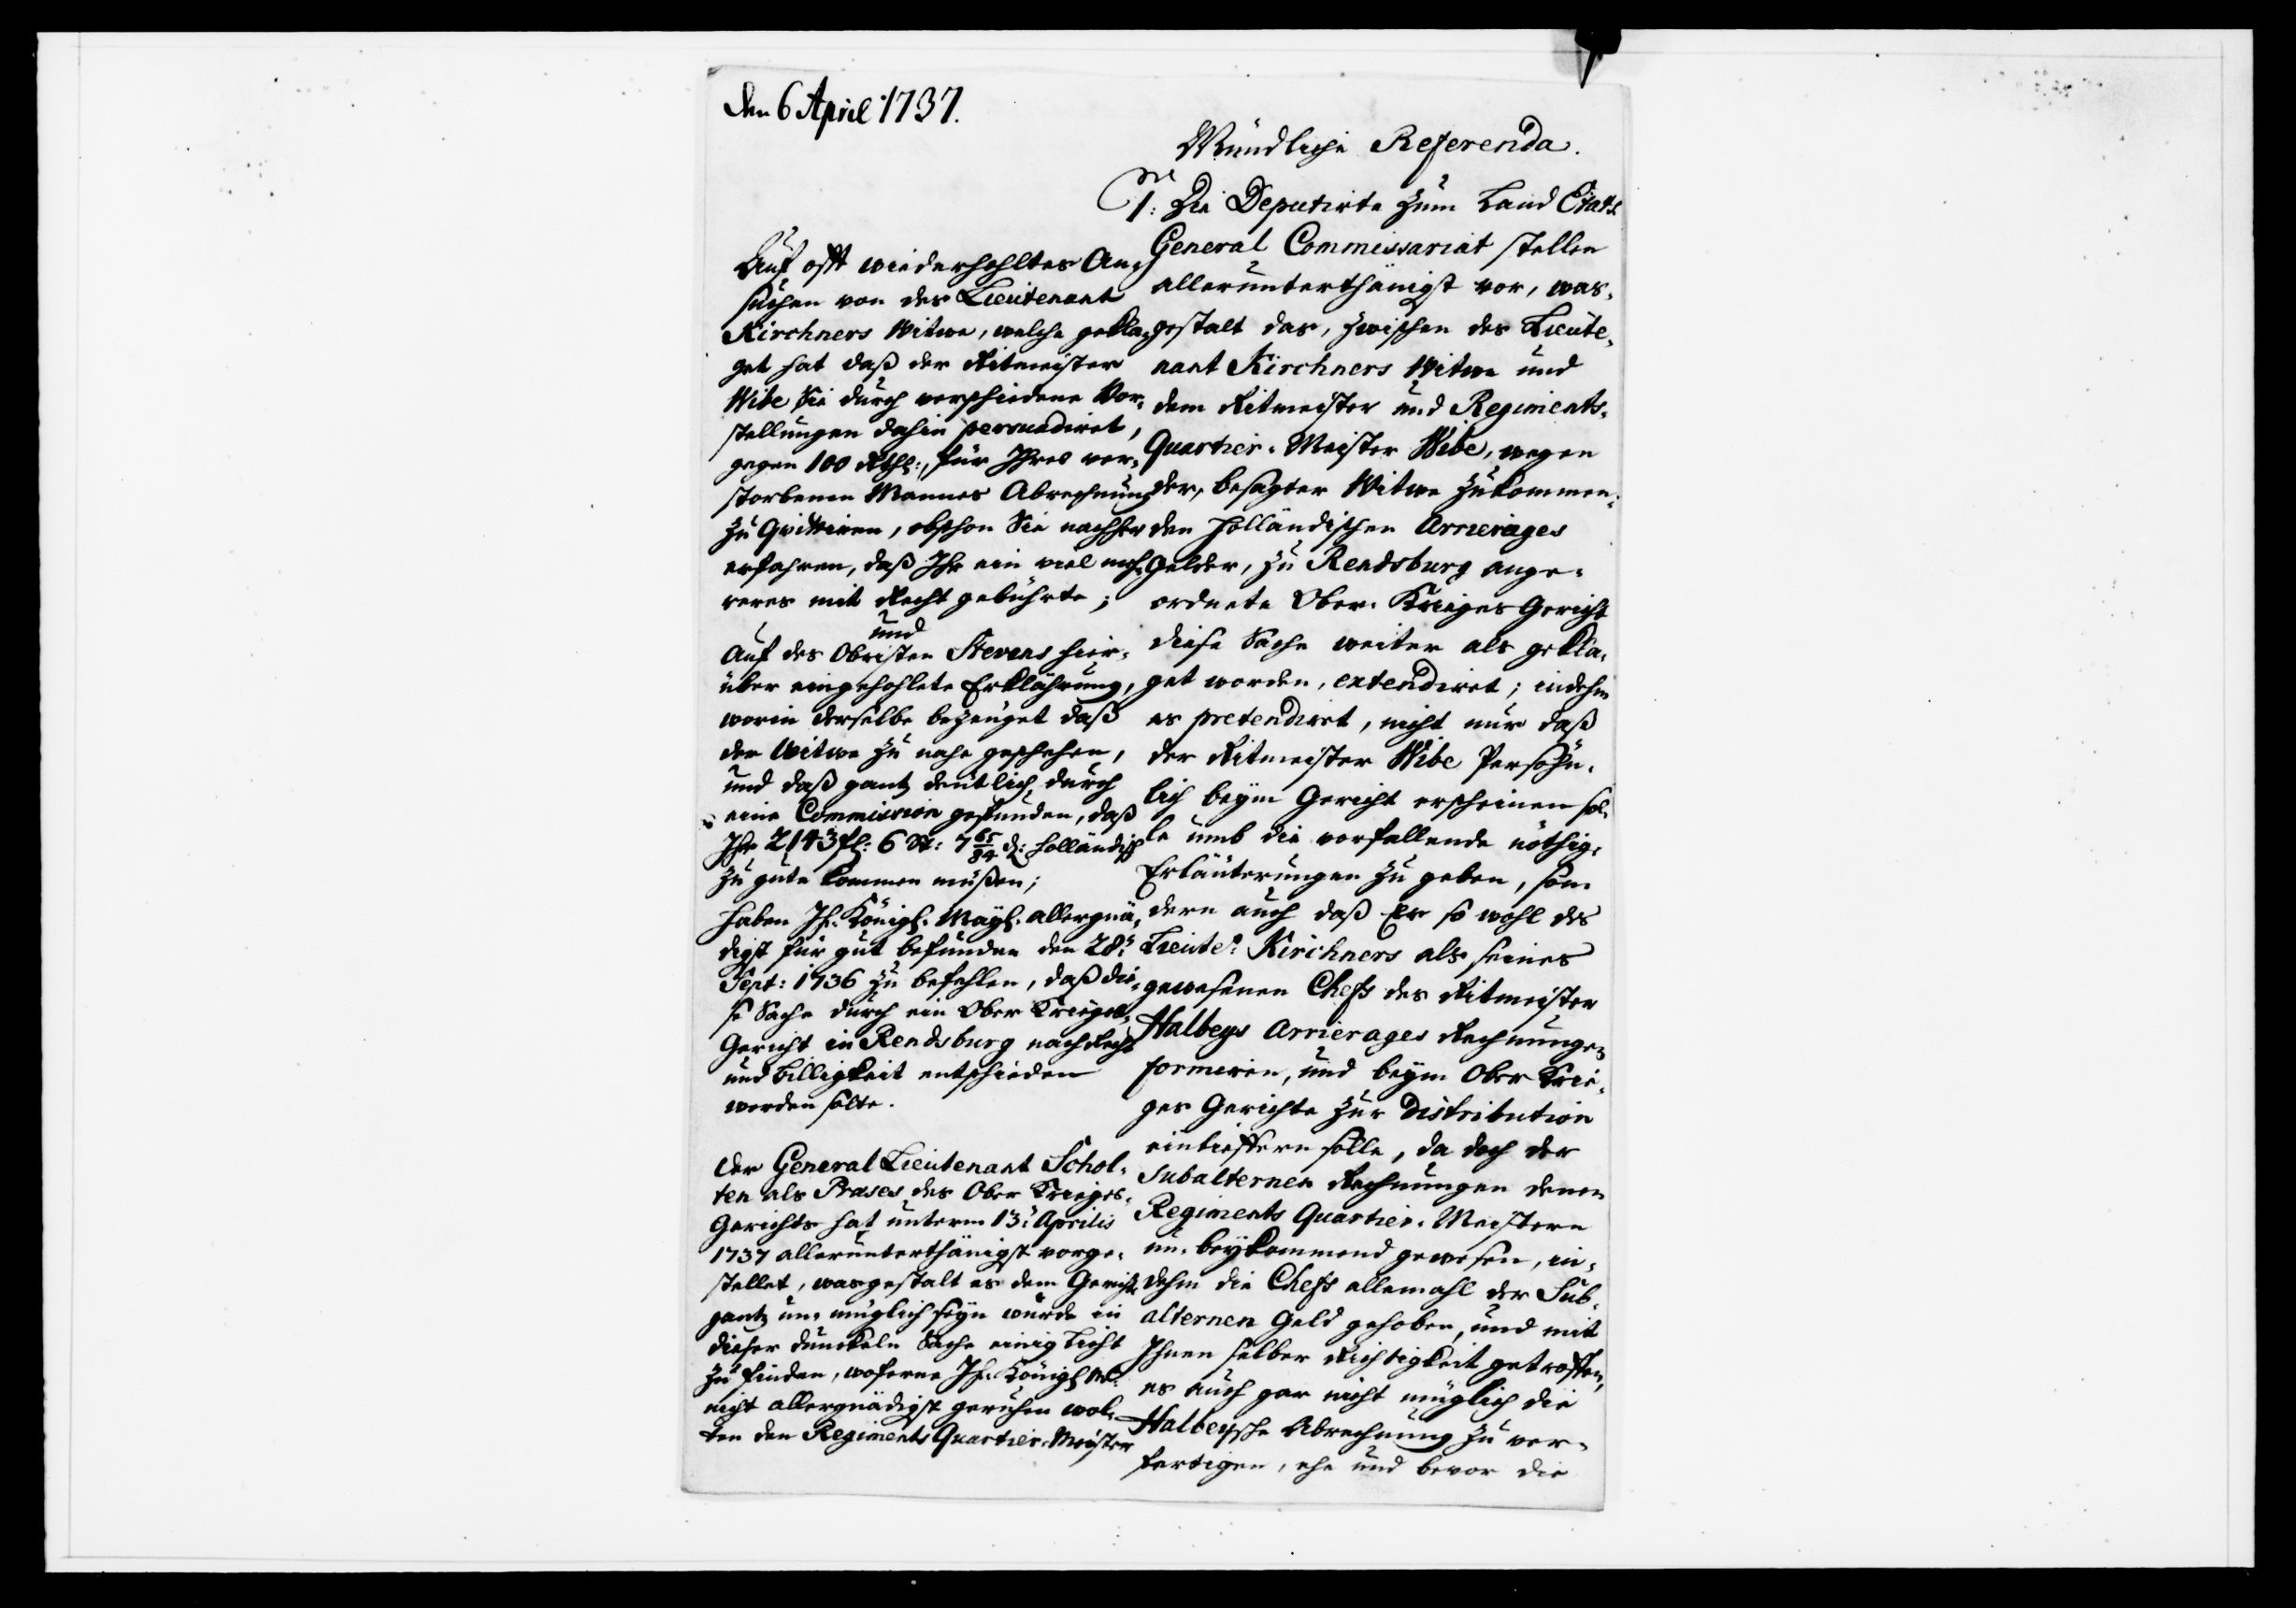 den 6 April 1737.
Mündliche Referenda.
1: Die Deputirte zum Land Etats
General Commissariat stellen
allerunterthänigst vor, was-
gestalt das, zwischen des Lieute-
nant Kirchners Witwe und
dem Ritmeister und Regiments-
Quartier-Meister Wibe, wegen
der, besagter Witwe zukommen-
den Holländischen Arrierages
Gelder, zu Rendsburg ange-
ordnete Ober-Krieges Gericht
diese Sache weiter als gekla-
get worden, extendiret; indehm
es pretendiret, nicht nur daß
der Ritmeister Wibe Persöhn-
lich beÿm Gericht erscheinen sol-
le umb die vorfallende nöthig-
Erläuterungen zu geben, son-
dern auch daß Er so wohl des
Lieutet: Kirchners als seines
gewesenen Chefs des Ritmeister
Halbeys Arrierages Rechnungen
formiren, und beÿm Ober Krie-
ges Gerichte zur Distribution
einlieffern solle, da doch der
Subalternen Rechnungen denen
Regiments Quartier-Meistern
un-beÿkommend gewesen, in-
dehm die Chefs allemahl der Sub-
alternen Geld gehoben, und mit
Ihnen selber Richtigkeit getroffen,
es auch gar nicht müglich die
Halbeysche Abrechnung zu ver-
fertigen, ehe und bevor die
Auf offt wiederhohltes An-
suchen von des Lieutenant
Kirchners Witwe, welche gekla-
get hat daß der Ritmeister
Wibe Sie durch verschiedene Vor-
stellungen dahin persuadiret,
gegen 100 Rthl:, für Ihres ver-
storbenen Mannes Abrechnung
zu Qvittiren, obschon Sie nachher
erfahren, daß Ihr ein viel meh-
reres mit Recht gebührte;
und
Auf des Obristen Stevens hier-
über eingehohlete Erklährung,
worin derselbe bezeuget daß
der Witwe zu nahe geschehen,
und daß gantz deutlich, durch
eine Commission gefunden, daß
Ihr 2143 fl: 6 St: 7 65/84 d: holländisch
zu gute kommen müßen;
haben Ih: Königl. Maÿt. allergnä-
digst für gut befunden den 28:
Sept: 1736 zu befehlen, daß die-
se Sache durch ein Ober Krieges-
Gericht in Rendsburg nach Recht
und Billigkeit entschieden
werden solte.
Der General Lieutenant Schol-
ten als Præses des Ober Krieges-
Gerichts hat unterm 13: Aprilis
1737 allerunterthänigst vorge-
stellet, wasgestalt es dem Gericht
gantz un-müglich seÿn würde in
dieser dunckeln Sache einig Licht
zu finden, woferne Ih: Königl M:
nicht allergnädigst geruhen wol-
ten den Regiments Quartier-Meister